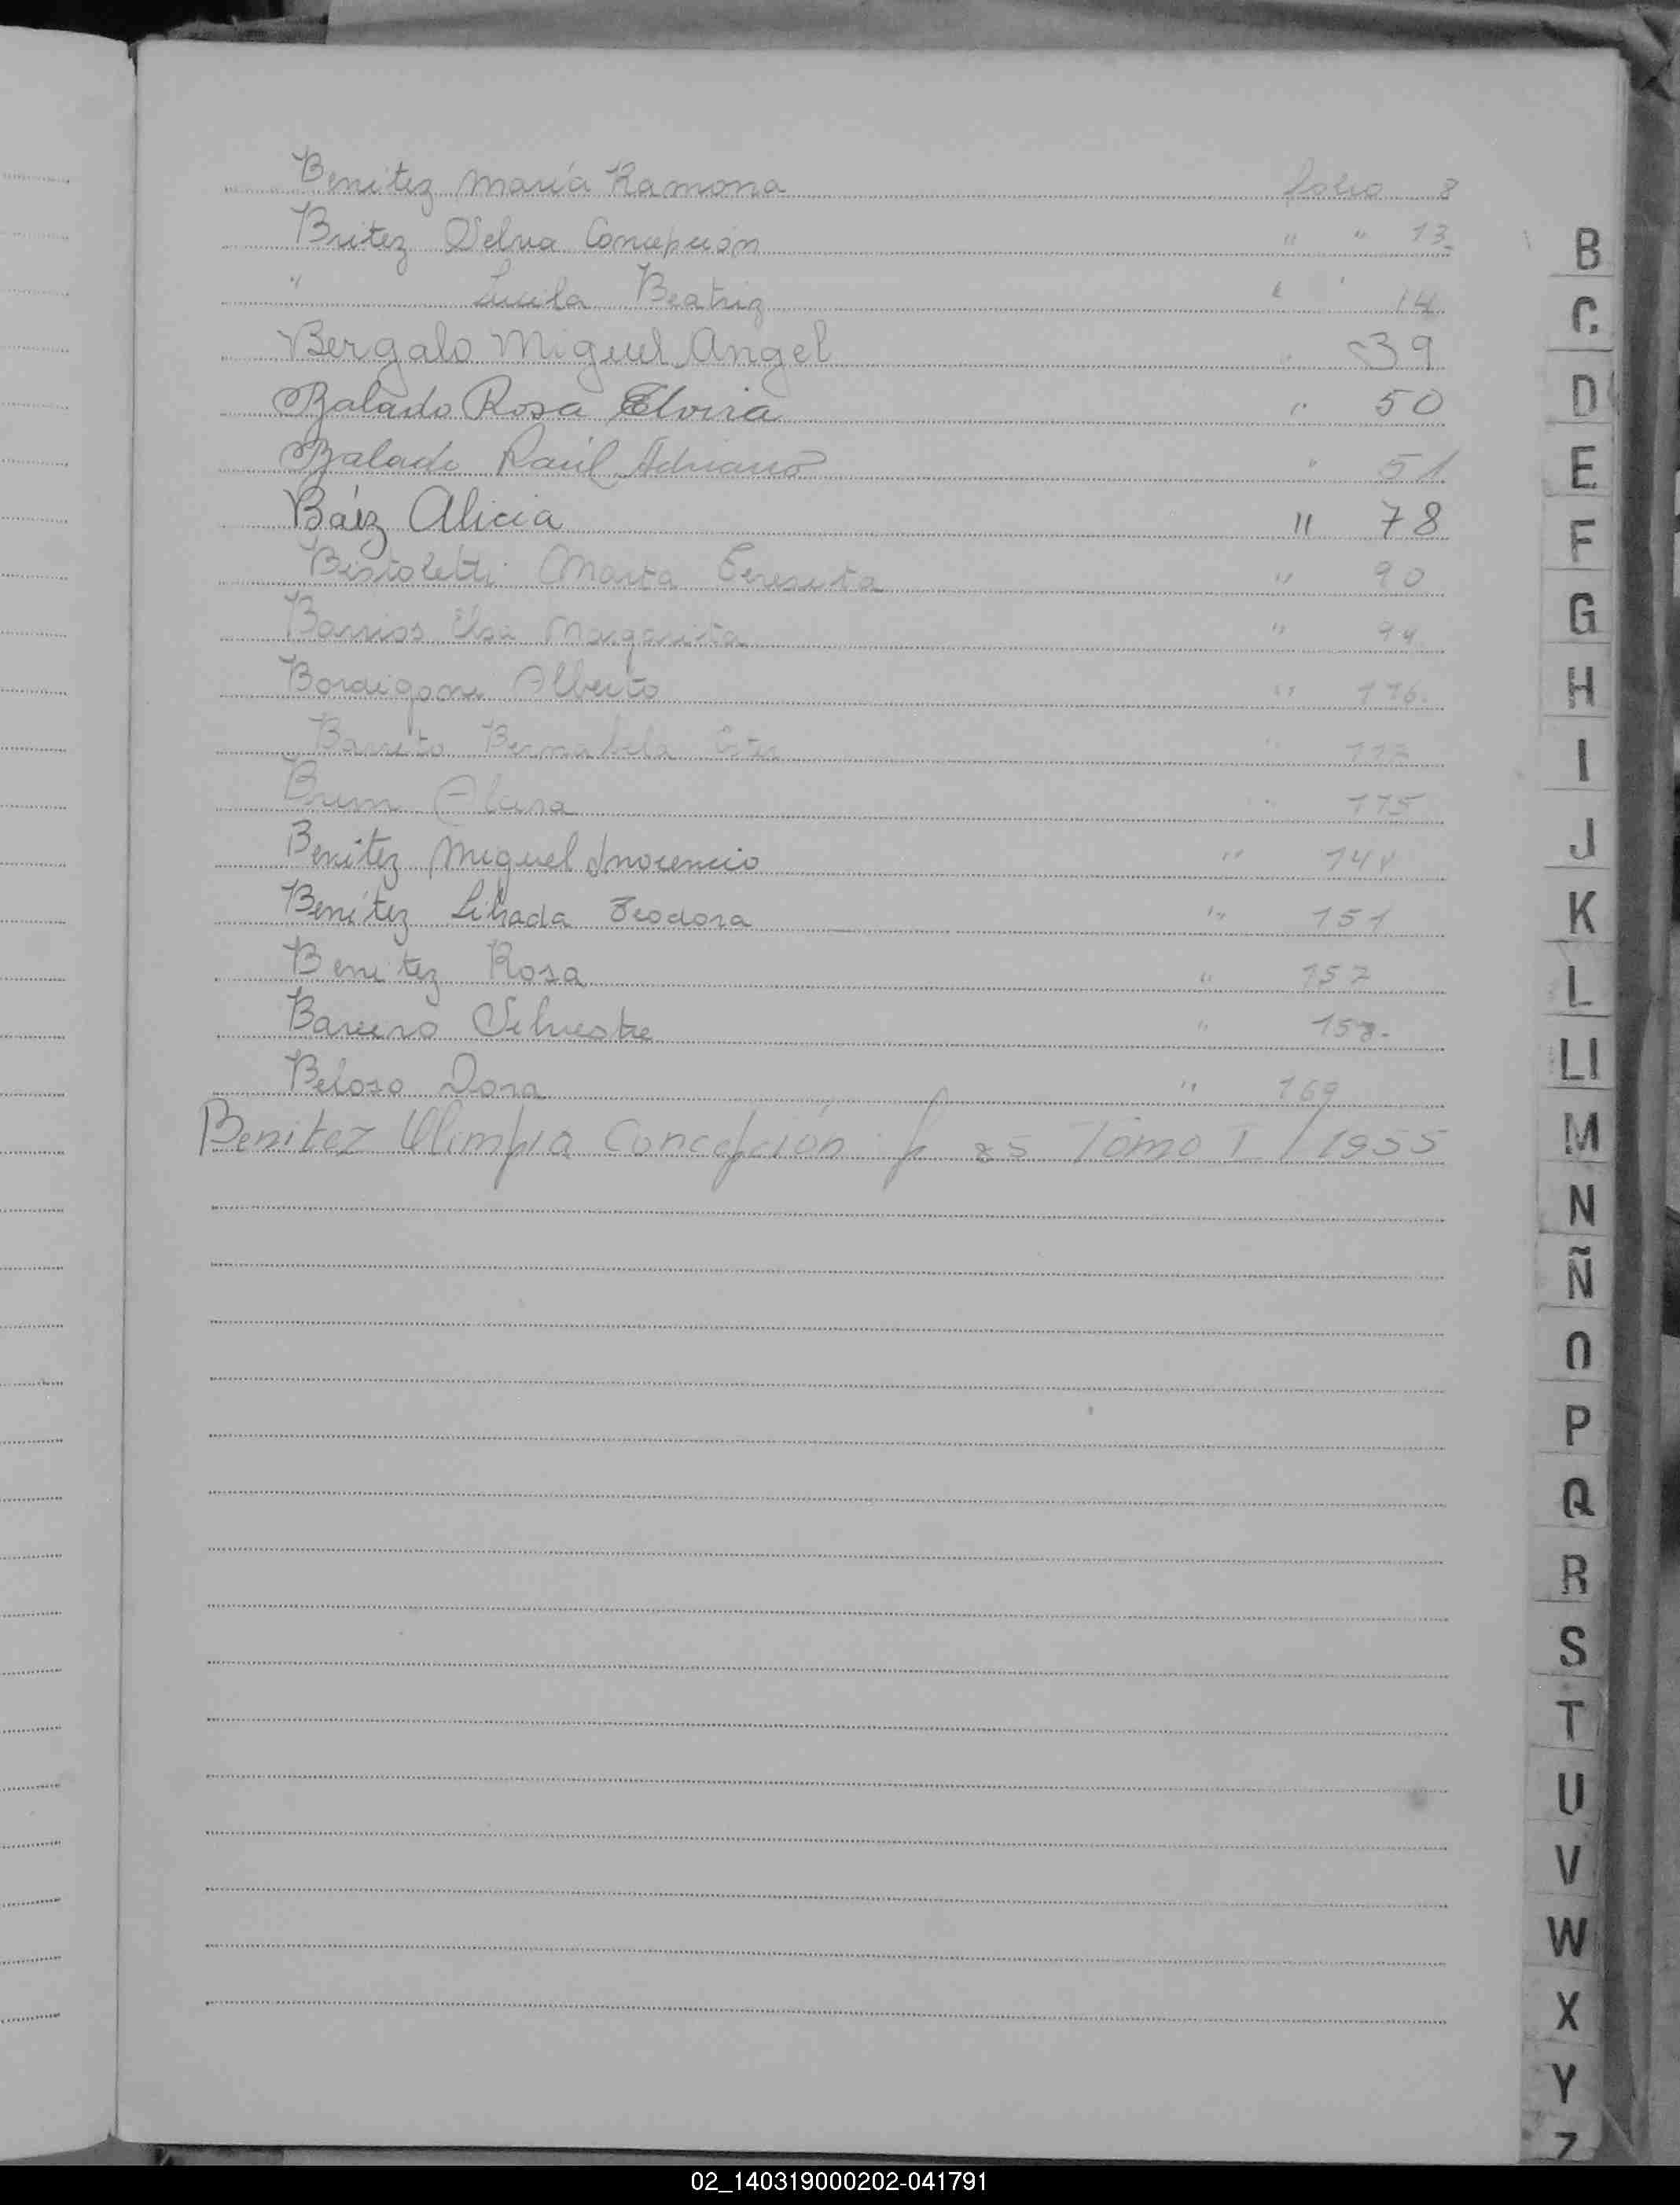 Benitez María Ramona folio 8
Britez Selva Concepción " " 13
" Lucila Beatriz " ' 14
Bergalo Miguel Angel " 39
Balado Rosa Elvira " 50
Balado Raúl Adriano " 51
Báez Alicia " 78
Bistoletti Marta Teresita " 90
Barrios Elsa Margarita " 94
Bordigoni Alberto "
Barreto Bernabela Ester "
Brum " 115
Benitez Miguel Inocencio "
Benítez Librada Teodora " 151
Benitez Rosa " 157
Barrero Silvestre " 158-
Beloso Dora " 169
Benitez Olimpia Concepción f 85 Tomo I / 1955
B
C
D
E
F
G
H
I
J
K
L
Ll
M
N
Ñ
O
P
Q
R
S
T
U
V
W
X
Y
Z
02_140319000202-041791